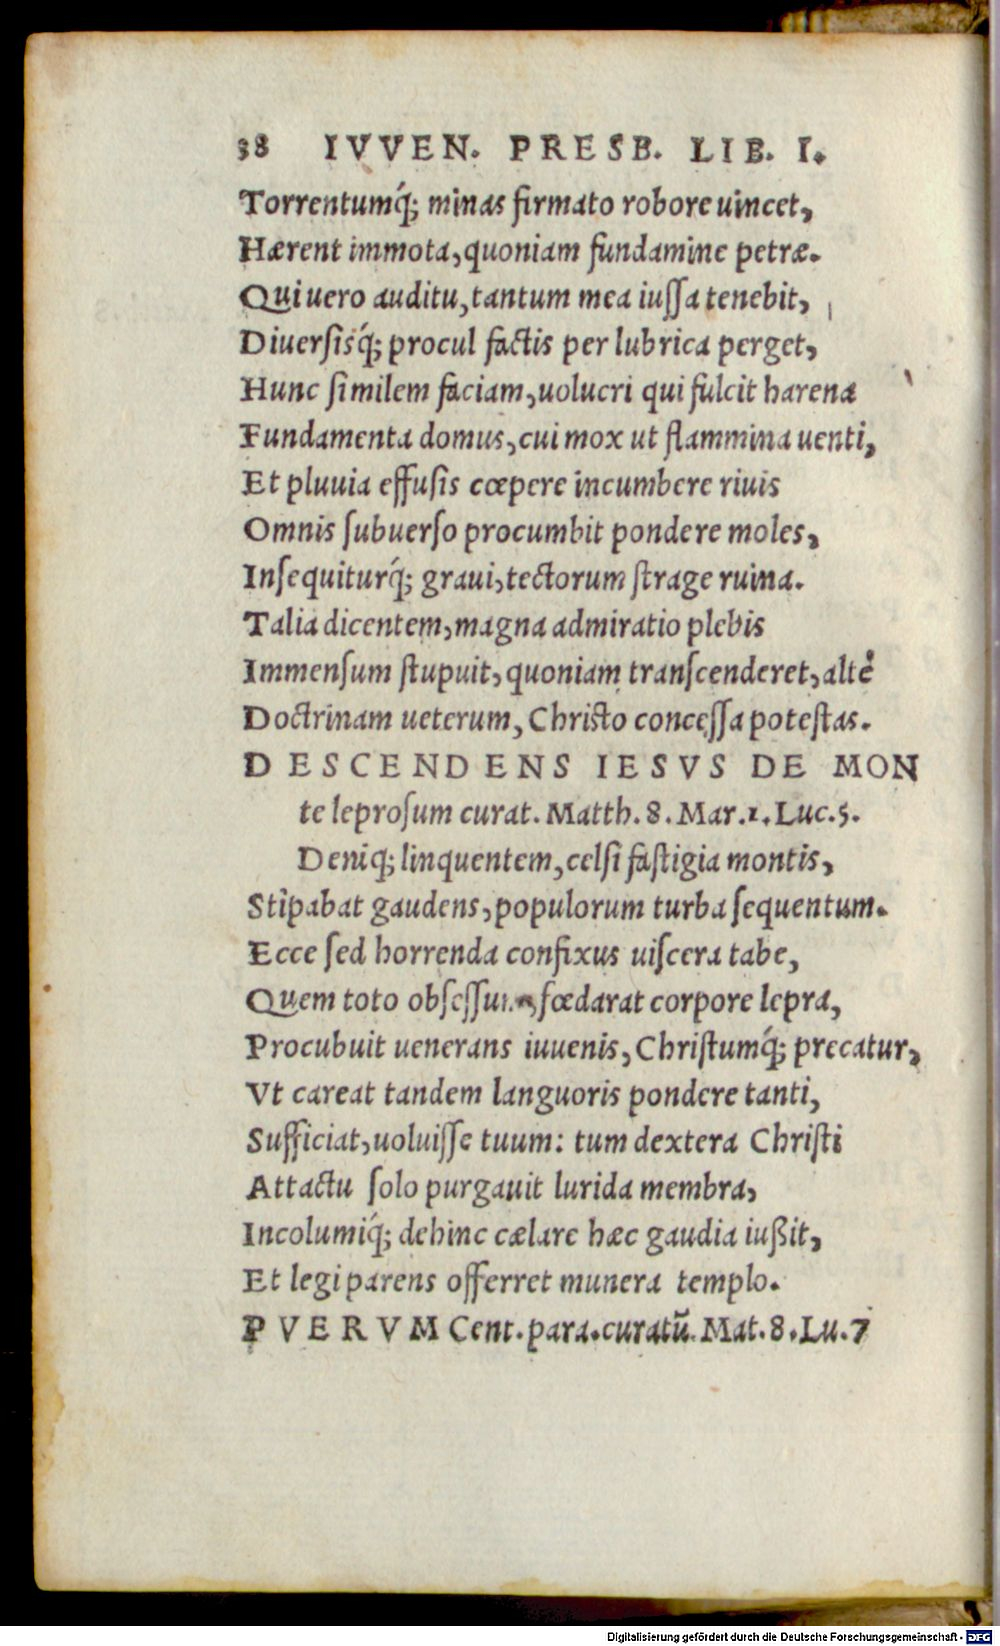 38 IVVEN. PRESB. LIB. I.
Torrentumq́; minas firmato robore uincet,
Hærent immota, quoniam fundamine petræ.
Qui uero auditu, tantum mea iussa tenebit,
Diuersisq́; procul factis per lubrica perget,
Hunc similem faciam, uolucri qui fulcit harena
Fundamenta domus, cui mox ut flammina uenti,
Et pluuia effusis cœpere incumbere riuis
Omnis subuerso procumbit pondere moles,
Insequiturq́; graui, tectorum strage ruina.
Talia dicentem, magna admiratio plebis
Immensum stupuit, quoniam transcenderet, altè
Doctrinam ueterum, Christo concessa potestas.
DESCENDENS IESVS DE MON
te leprosum curat. Matth. 8. Mar. 1. Luc. 5.
Deniq; linquentem, celsi fastigia montis,
Stipabat gaudens, populorum turba sequentum.
Ecce sed horrenda confixus uiscera tabe,
Quem toto obsessum, fœdarat corpore lepra,
Procubuit uenerans iuuenis, Christumq́; precatur,
Vt careat tandem languoris pondere tanti,
Sufficiat, uoluisse tuum: tum dextera Christi
Attactu solo purgauit lurida membra,
Incolumiq́; dehinc cælare hæc gaudia iußit,
Et legi parens offerret munera templo.
PVERVM Cent. para. curatū. Mat. 8. Lu. 7
Digitalisierung gefördert durch die Deutsche Forschungsgemeinschaft - DFG